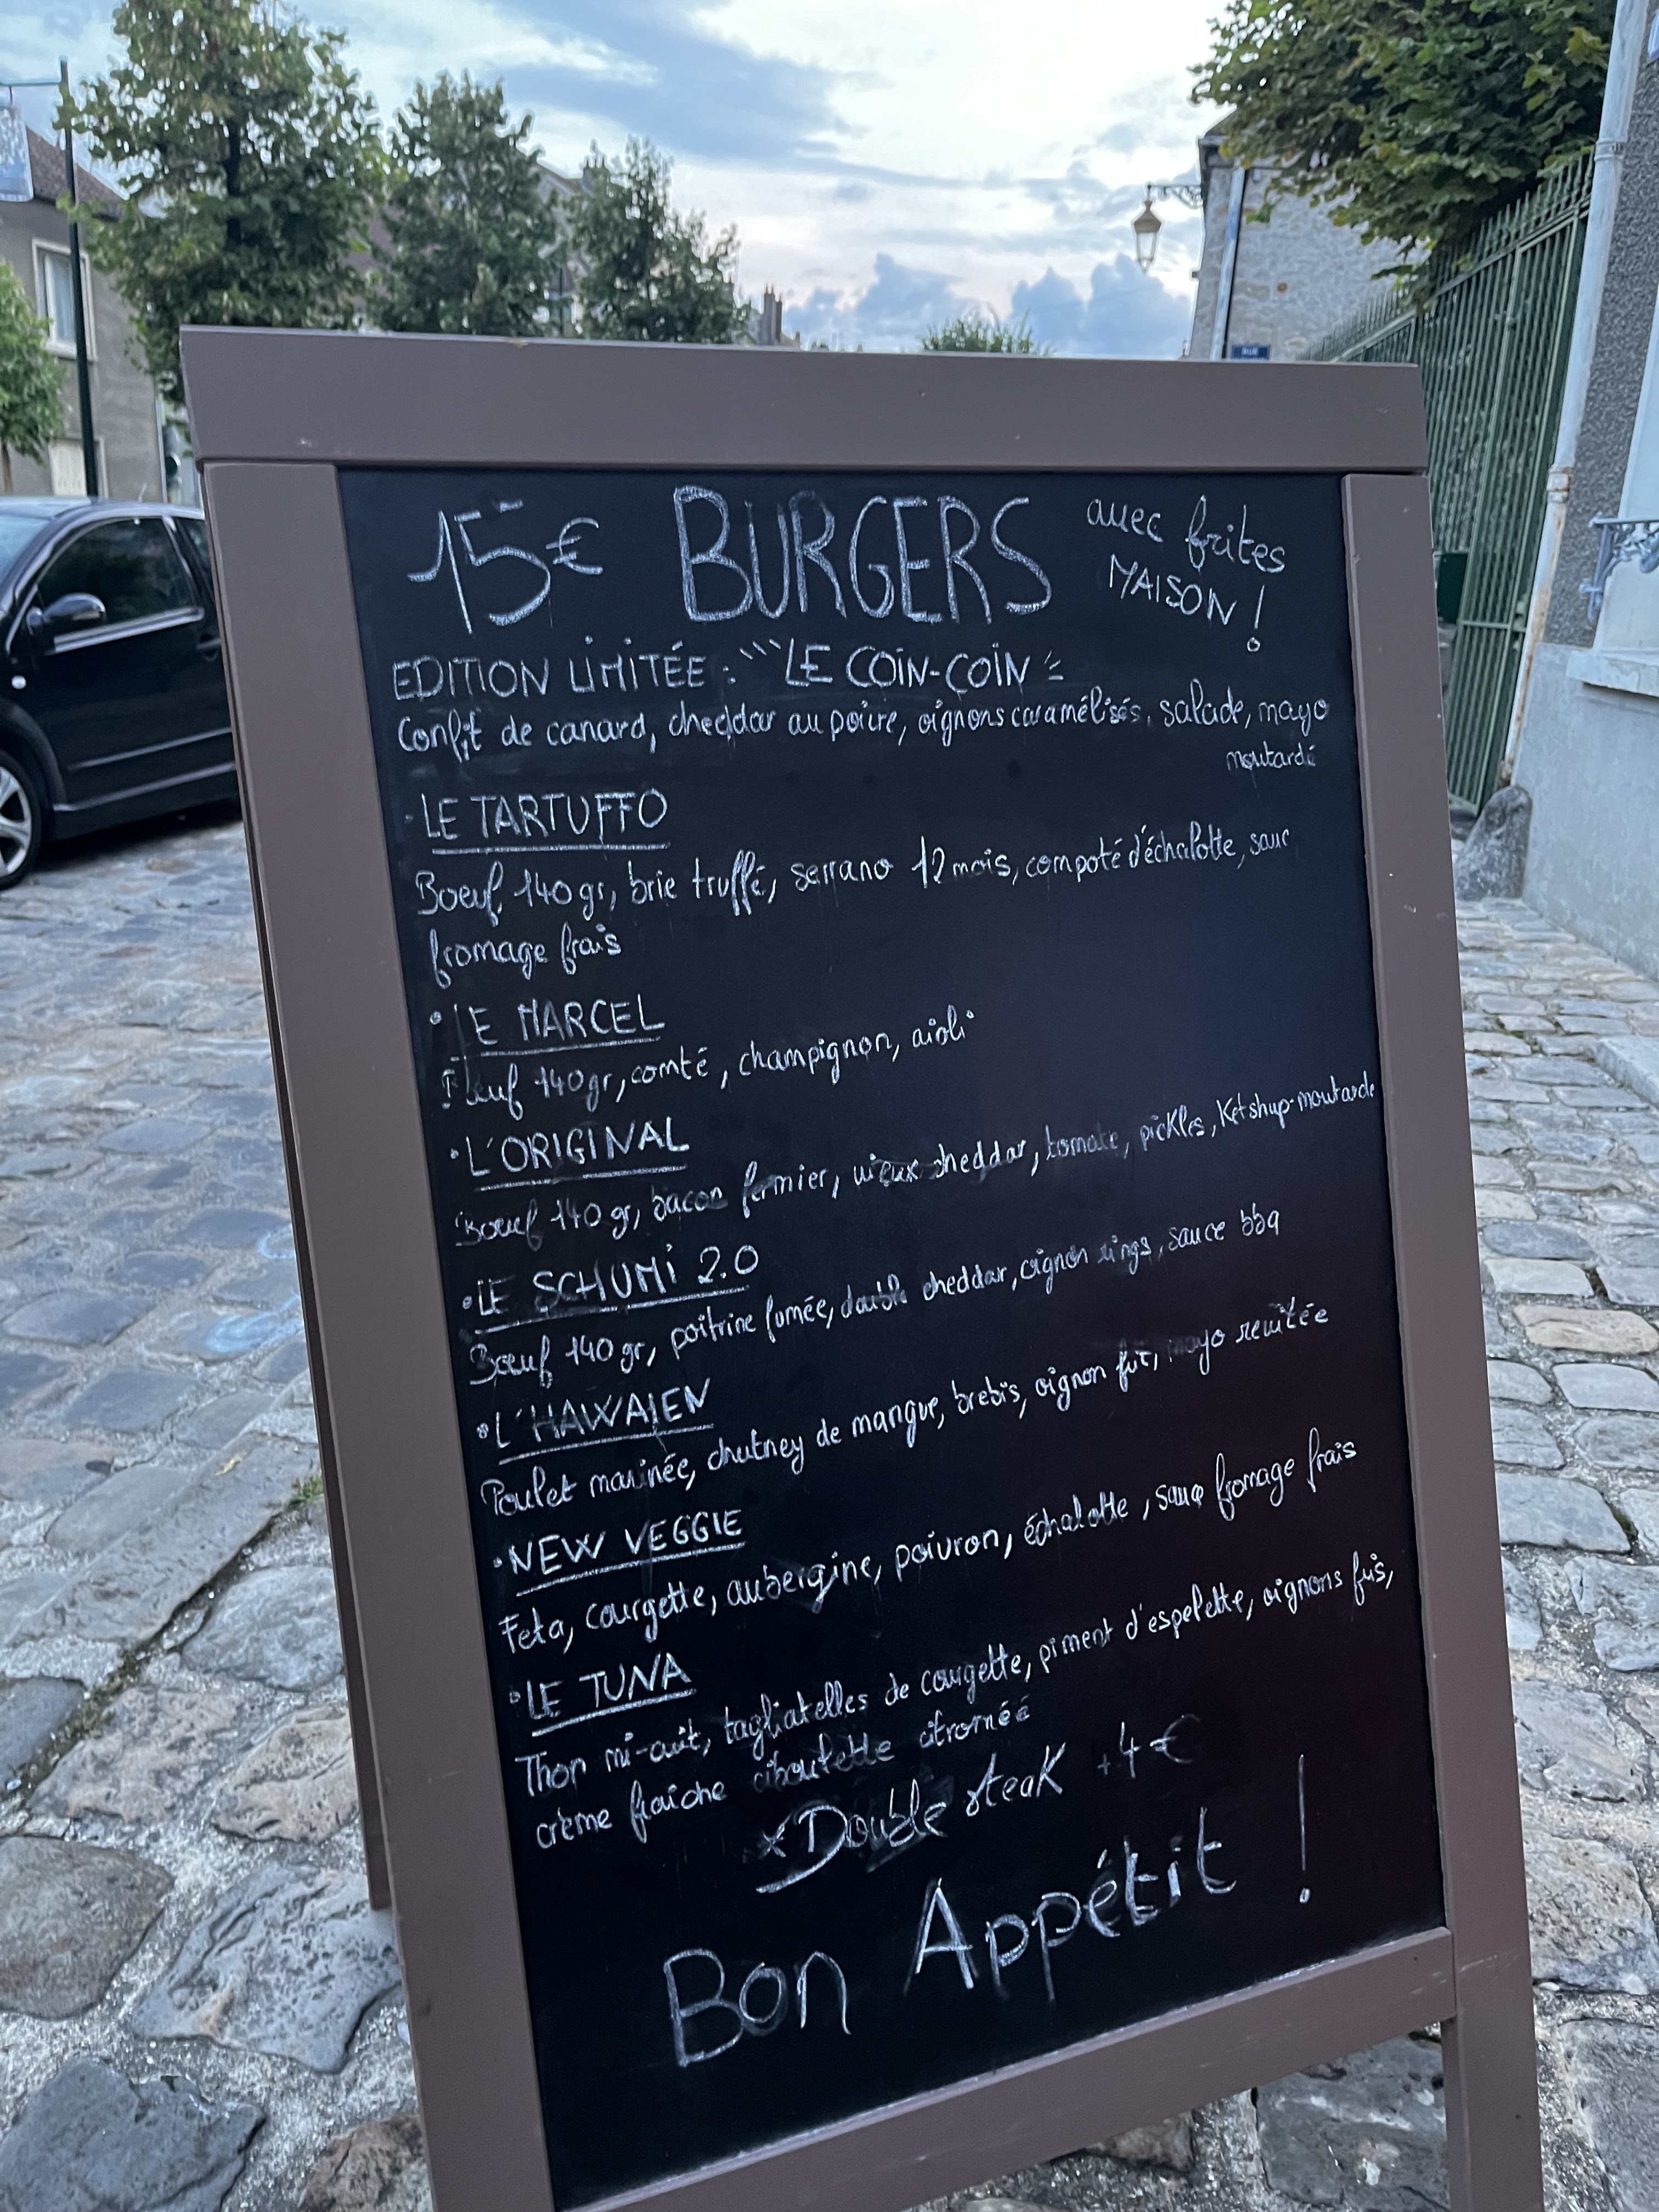 15€ BURGERS avec frites
MAISON !
EDITION LIMITÉE : "LE COIN-COIN"
Confit de canard, cheddar au poivre, oignons caramélisés, salade, mayo
moutarde
· LE TARTUFFO
Boeuf 140 gr, brie truffé, serrano 12 mois, compoté d'échalotte, sauce
fromage frais
· LE MARCEL
Boeuf 140gr, comté, champignon, aioli
· L'ORIGINAL
Boeuf 140 gr, bacon fermier, vieux cheddar, tomate, pickles, Ketshup-moutarde
· LE SCHUMI 2.0
Boeuf 140 gr, poitrine fumée, double cheddar, oignon rings, sauce bbq
· L'HAWAIEN
Poulet marinée, chutney de mangue, brebis, oignon frit, mayo revitée
· NEW VEGGIE
Feta, courgette, aubergine, poivron, échalotte, sauce fromage frais
· LE TUNA
Thon mi-cuit, tagliatelles de courgette, piment d'espelette, oignons frits,
crème fraiche ciboulette citronéé
x Double steak +4€
Bon Appétit !
RUE